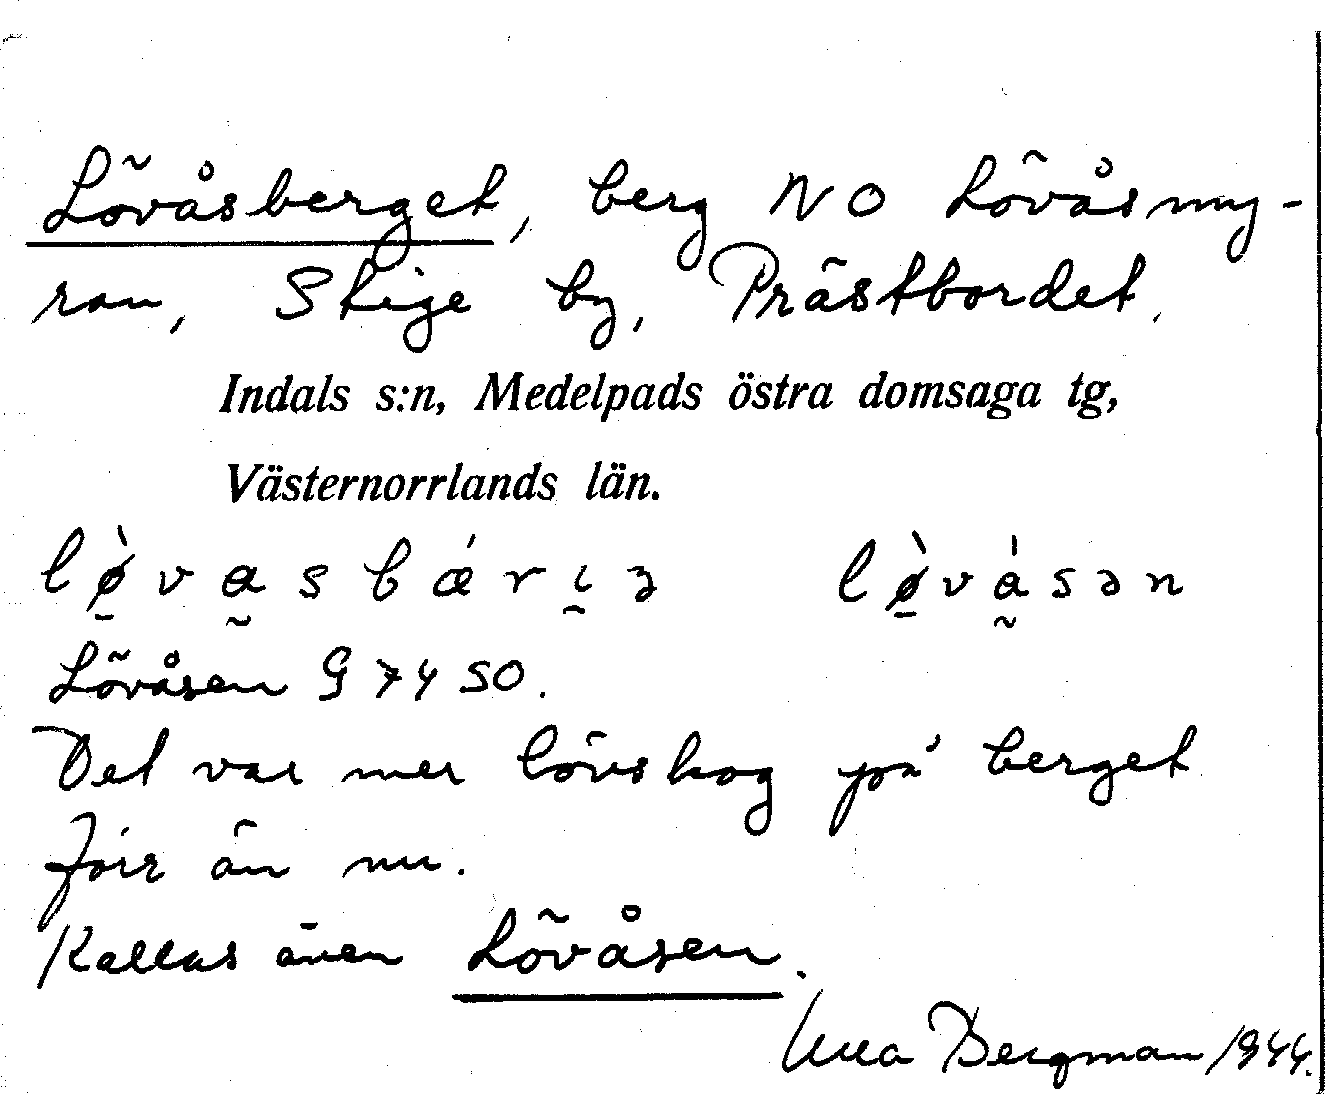 Lövåsberget, berg NO Lövåsmy-
ran, Skige by, Prästbordet.
Indals s:n, Medelpads östra domsaga tg,
Västernorrlands län.
lø̱̀va̰sbǽrḭə lø̱̀vá̰sən
Lövåsen G 7450.
Det var mer lövskog på berget
förr än nu.
Kallas även Lövåsen.
Bergman 1944.